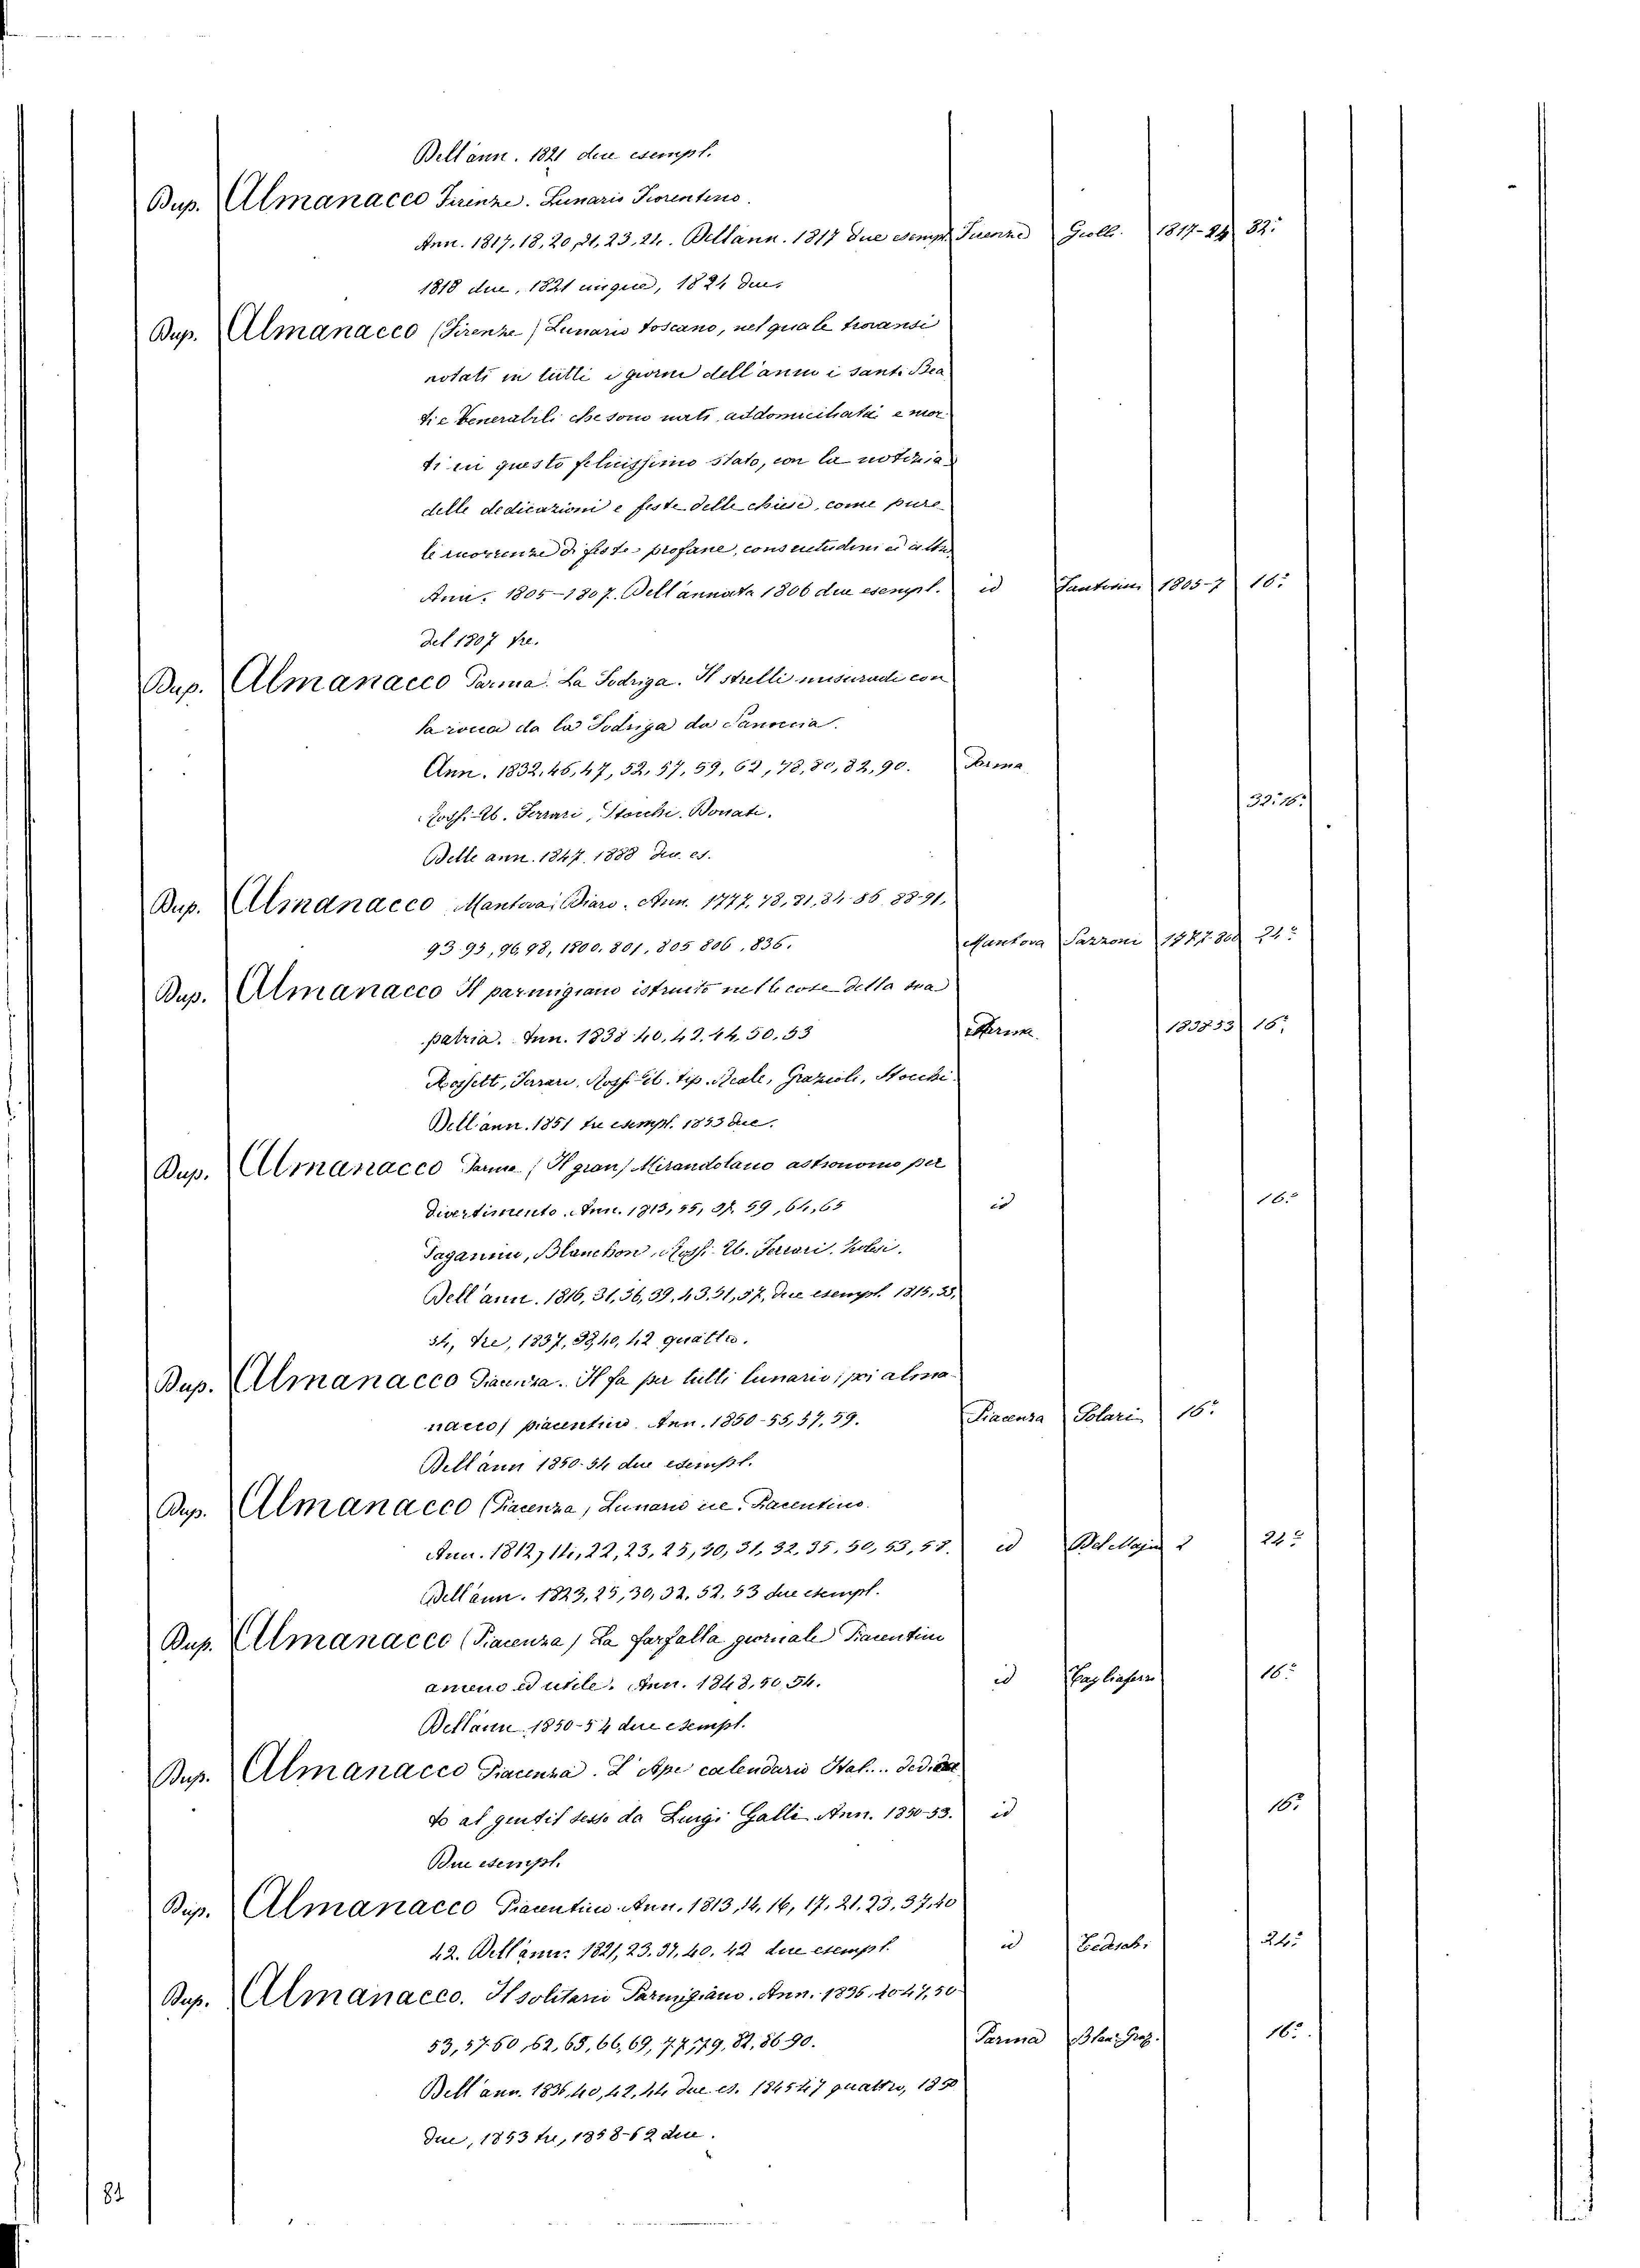 Dell'ann. 1821 due esempl.
Dup. Almanacco Firenze. Lunario Fiorentino.
Ann. 1817, 18, 20, 21, 23, 24. Dell'ann. 1817 due esempl. Firenze Grolli. 1817-24 32.°
1818 due, 1821 cinque, 1824 due.
Dup. Almanacco (Firenze) Lunario toscano, nel quale trovansi
notati in tutti i giorni dell'anno i santi Bea
ti e Venerabili che sono nati, addomiciliati e mor
ti in questo felicissimo stato, con la notizia
delle dedicazioni e feste delle chiese, come pure
le ricorrenze di feste profane, consuetudini ed altro
Ann. 1805-1807. Dell'annata 1806 due esempl. id 1805-7 16.°
Del 1807 tre.
Dup. Almanacco Parma. La Sodriga. Il strelli misurade con
la roca da la Sodriga da Panocia.
Ann. 1832, 46, 47, 52, 57, 59, 62, 78, 80, 82, 90. Parma
32.° 16.°
Rossi-Ub. Ferrari, Stocchi. Donati.
Delle ann. 1847. 1888 due es.
Dup. Almanacco Mantova. Diaro. Ann. 1777, 78, 81, 84-86 88-91,
93-95, 96, 98, 1800. 801, 805 806, 836. Mantova Pazzoni 24.°
Dup. Almanacco Il parmigiano istruito nelle cose della sua
patria. Ann. 1838 40, 42, 44, 50, 53 Parma 1838 53 16.°
Rossetti, Ferrari, Rossi-Ub. tip. Reale, Grazioli, Stocchi
Dell'ann. 1851 tre esempl. 1853 due.
Dup. Almanacco Parma (Il gran) Mirandolano astronomo per
divertimento. Ann. 1813, 55, 57, 59, 64, 65 id 16.°
Paganini, Blanchon, Rossi-Ub. Ferrari,
Dell'ann. 1816, 31, 36, 39, 43, 51, 57, due esempl. 1815, 33,
34, tre, 1837, 38, 40, 42 quattro.
Dup. Almanacco Piacenza. Il fa per tutti lunario (poi alma-
nacco) piacentino. Ann. 1850-55, 57, 59. Piacenza Solari 16.°
Dell'ann 1850-54 due esempl.
Dup. Almanacco (Piacenza) Lunario Piacentino.
Ann. 1812, 14, 22, 23, 25, 30, 31, 32, 35, 50, 53, 58. id Del Majno 24.°
Dell'ann. 1823, 25, 30, 32, 52, 53 due esempl.
Dup. Almanacco (Piacenza) La farfalla giornale Piacentino
ameno ed utile. Ann. 1848, 50 54. id Tagliaferri 16.°
Dell'ann. 1850-54 due esempl.
Dup. Almanacco Piacenza. L'Ape calendario Ital... dedica
to al gentil sesso da Luigi Galli Ann. 1850-53. id 16.°
Due esempl.
Dup. Almanacco Piacentino. Ann. 1813, 14, 16, 17, 21, 23, 37, 40
42. Dell'ann. 1821, 23, 37, 40, 42 due esempl. id Tedeschi 24.°
Dup. Almanacco. Il solitario Parmigiano. Ann. 1836, 40 47, 50
53, 57-60, 62, 65, 66, 69, 77, 79, 82, 86 90. Parma 16.°
Dell'ann. 1836, 40, 42, 44 due es. 1845 47 quattro, 1850
due, 1853 tre, 1858-62 due.
82